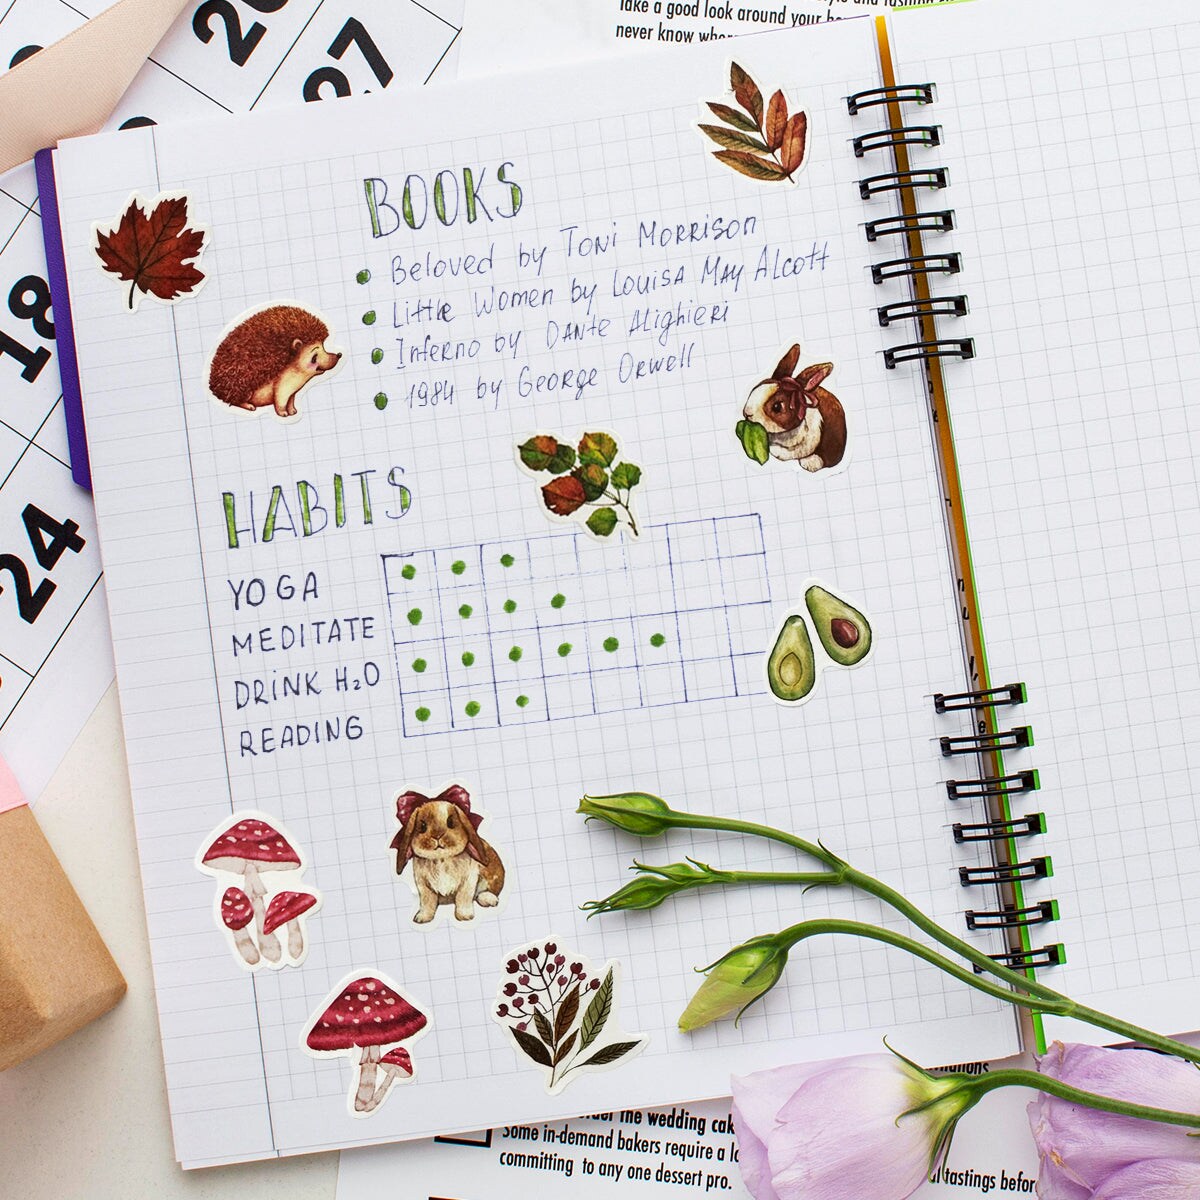 20
27
18
24
Take a good look around your
never know
BOOKS
Beloved by Toni Morrison
Little Women by Louisa May Alcott
Inferno by Dante Alighieri
1984 by George Orwell
HABITS
YOGA
MEDITATE
DRINK H₂O
READING
the wedding
Some in-demand bakers require a
committing to any one dessert pro.
tastings